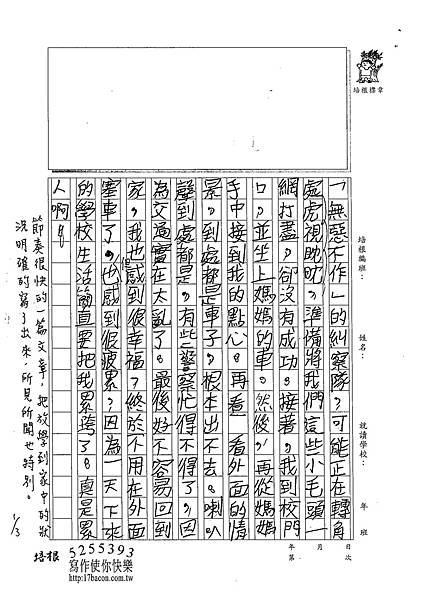 培根標章
培根編班：
姓名：
就讀學校：
年 班
「無惡不作」的糾察隊？可能正在轉角
處虎視眈眈，準備將我們這些小毛頭一
網打盡，卻沒有成功。接著，我到校門
口，並坐上媽媽的車。然後，再從媽媽
手中接到我的點心。再看看外面的情
景，到處都是車子，根本出不去。喇叭
聲到處都是，有些警察忙得不得了，因
為交通實在太亂了。最後好不容易回到
家，我也感到很幸福，終於不用在外面
塞車了，也感到很疲累，因為一天下來
的學校生活簡直要把我累垮了。真是累
人啊！
節奏很快的一篇文章，把放學到家中的狀
況明確的寫了出來，所見所聞也特別。
1/3
年 月 日
第 次
培根 5255393
寫作使你快樂
http://17bacon.com.tw